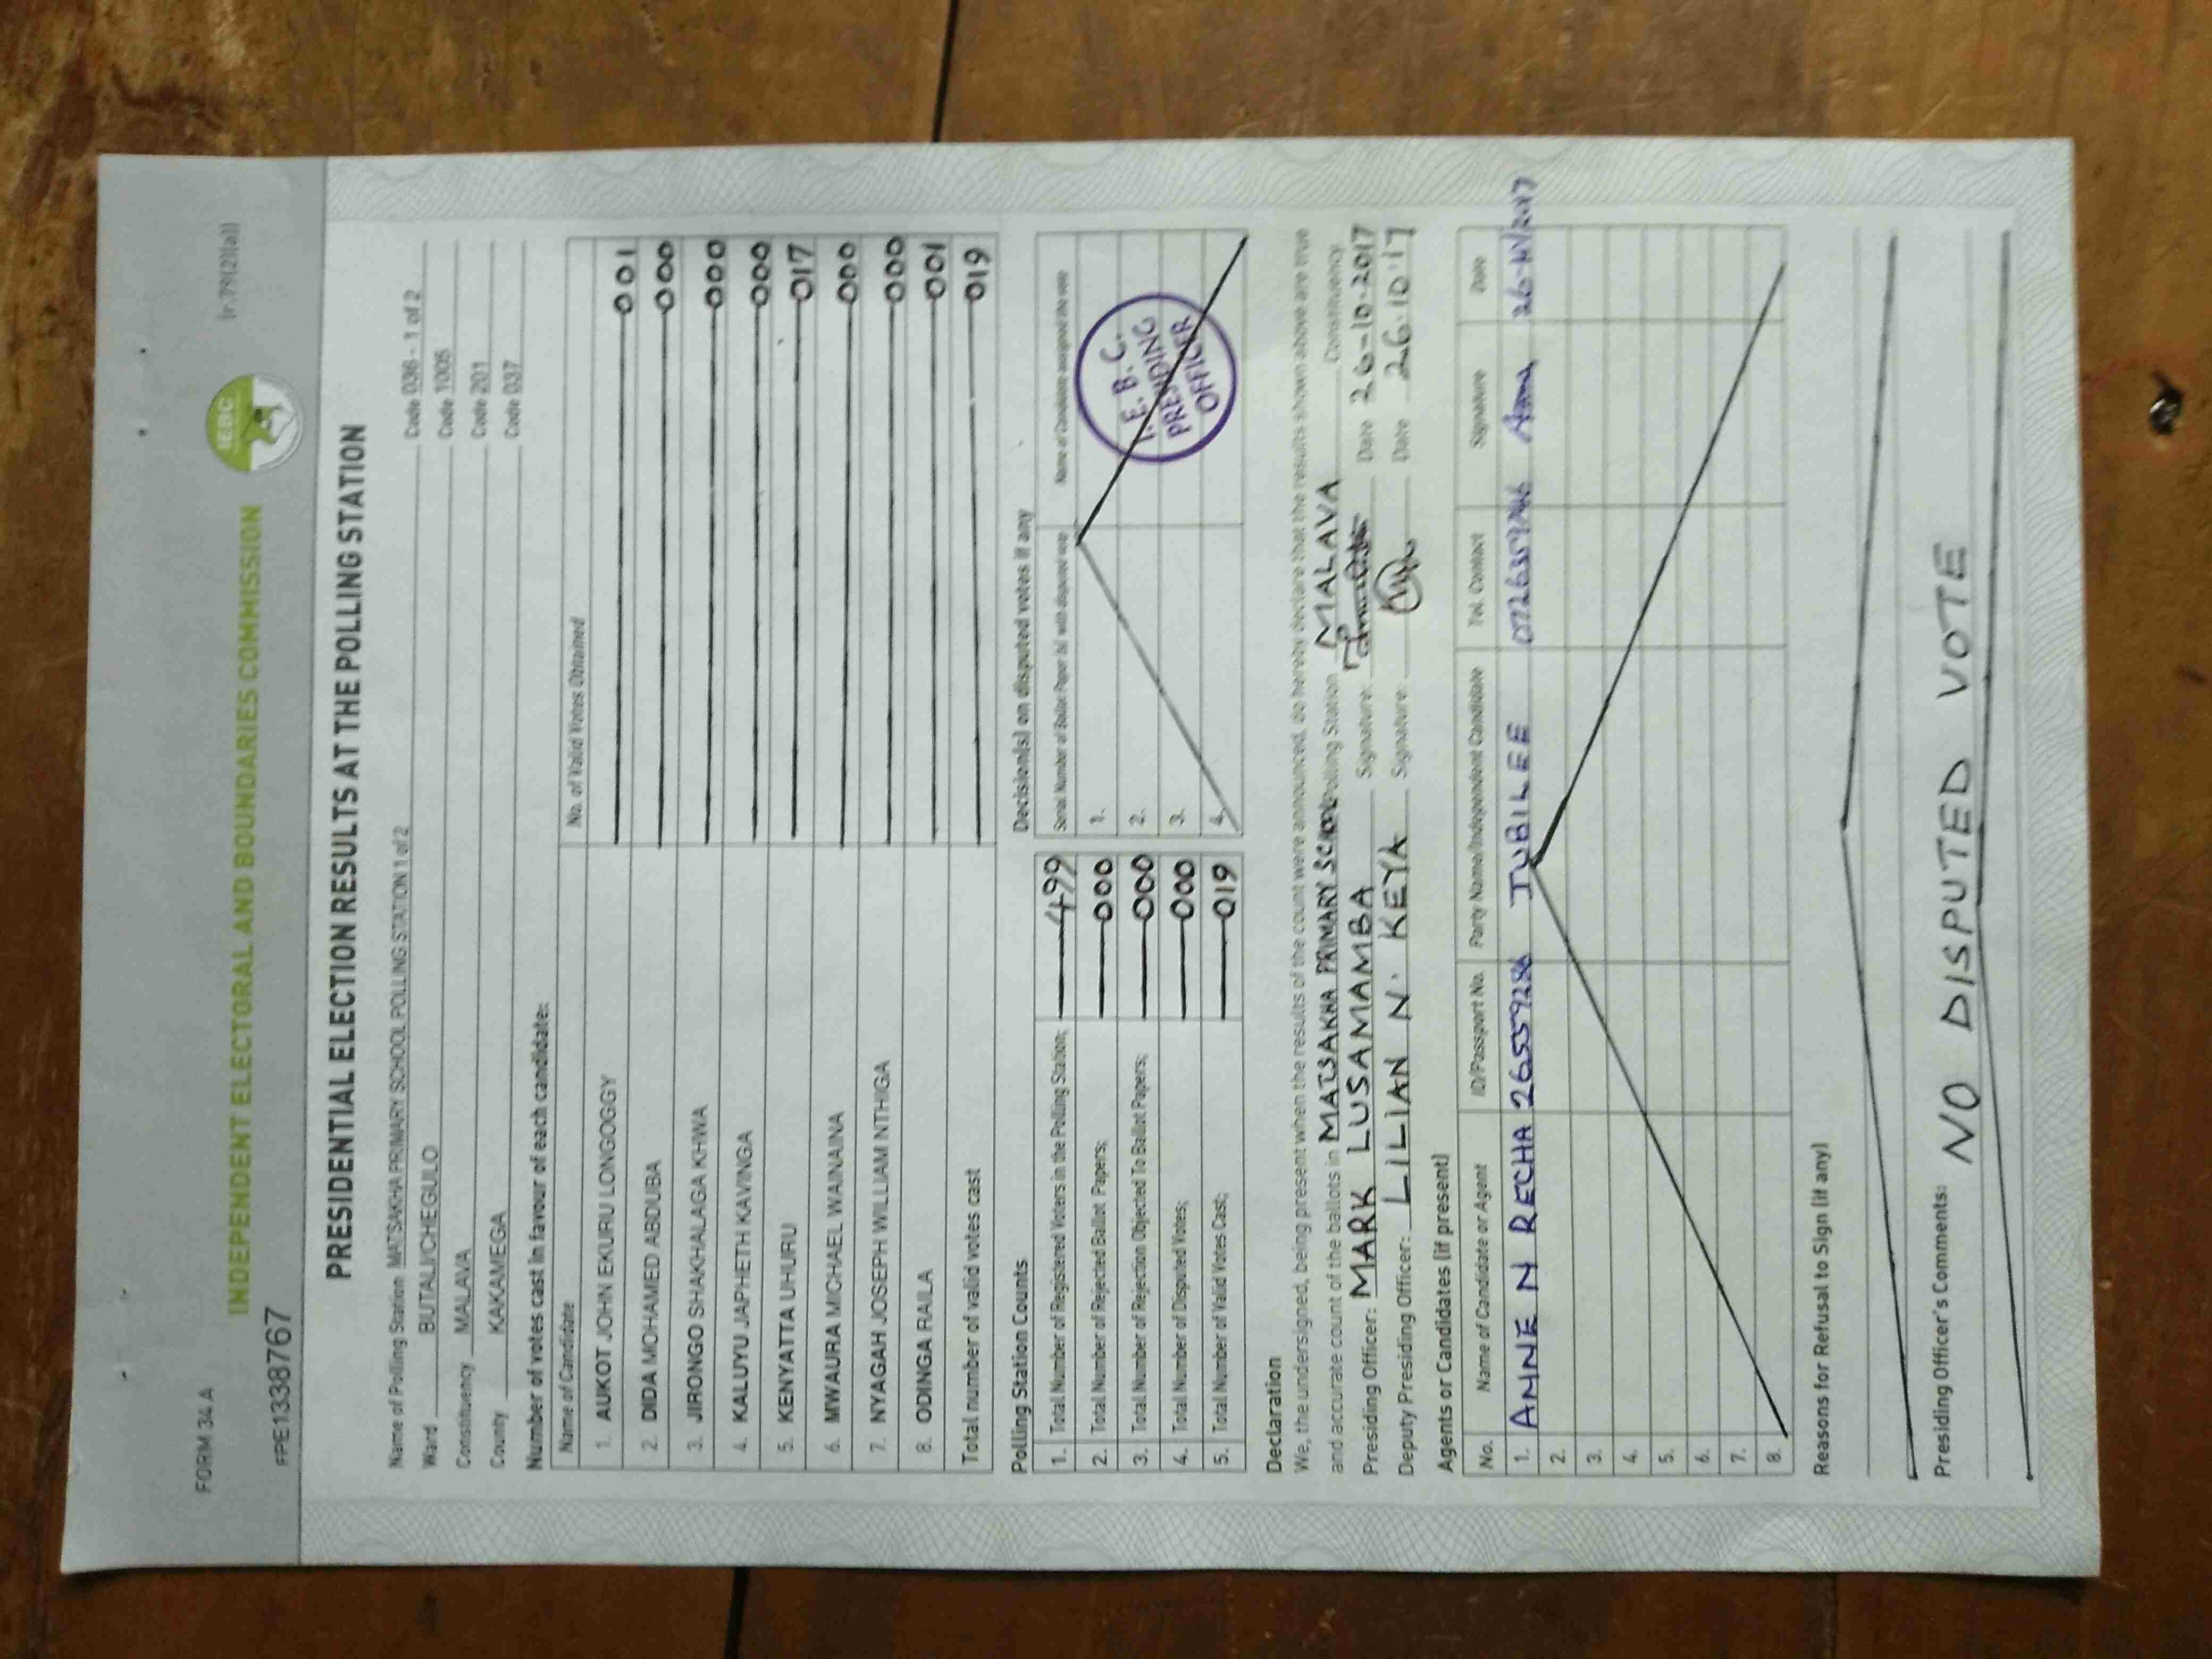 FORM 34 A
(r.79(2)(a))
INDEPENDENT ELECTORAL AND BOUNDARIES COMMISSION
IEBC
FPE1338767
PRESIDENTIAL ELECTION RESULTS AT THE POLLING STATION
Name of Polling Station MATSAKHA PRIMARY SCHOOL POLLING STATION 1 of 2 Code 036 - 1 of 2
Ward BUTALI/CHEGULO Code 1005
Constituency MALAVA Code 201
County KAKAMEGA Code 037
Number of votes cast in favour of each candidate:
Name of Candidate No. of Valid Votes Obtained
1. AUKOT JOHN EKURU LONGOGGY 001
2. DIDA MOHAMED ABDUBA 000
3. JIRONGO SHAKHALAGA KHWA 000
4. KALUYU JAPHETH KAVINGA 000
5. KENYATTA UHURU 017
6. MWAURA MICHAEL WAINAINA 000
7. NYAGAH JOSEPH WILLIAM NTHIGA 000
8. ODINGA RAILA 001
Total number of valid votes cast 019
Polling Station Counts
1. Total Number of Registered Voters in the Polling Station; 499
2. Total Number of Rejected Ballot Papers; 000
3. Total Number of Rejection Objected To Ballot Papers; 000
4. Total Number of Disputed Votes; 000
5. Total Number of Valid Votes Cast; 019
Decision(s) on disputed votes if any
Serial Number of Ballot Paper (s) with disputed vote Name of Candidate assigned the vote
1.
2.
3.
4.
I.E.B.C.
PRESIDING
OFFICER
Declaration
We, the undersigned, being present when the results of the count were announced, do hereby declare that the results shown above are true
and accurate count of the ballots in MATSAKHA PRIMARY SCHOOL Polling Station MALAVA Constituency
Presiding Officer: MARK LUSAMAMBA Signature: Date 26-10-2017
Deputy Presiding Officer: LILIAN N. KEYA Signature: Date 26.10.17
Agents or Candidates (if present)
No. Name of Candidate or Agent ID/Passport No. Party Name/Independent Candidate Tel. Contact Signature Date
1. ANNE N RECHA JUBILEE
2.
3.
4.
5.
6.
7.
8.
Reasons for Refusal to Sign (if any)
Presiding Officer's Comments:
NO DISPUTED VOTE